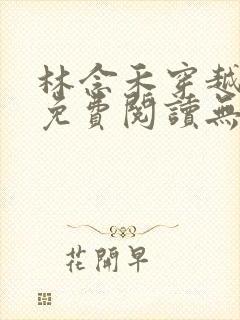 林念禾穿越
免費閱讀無
花開早